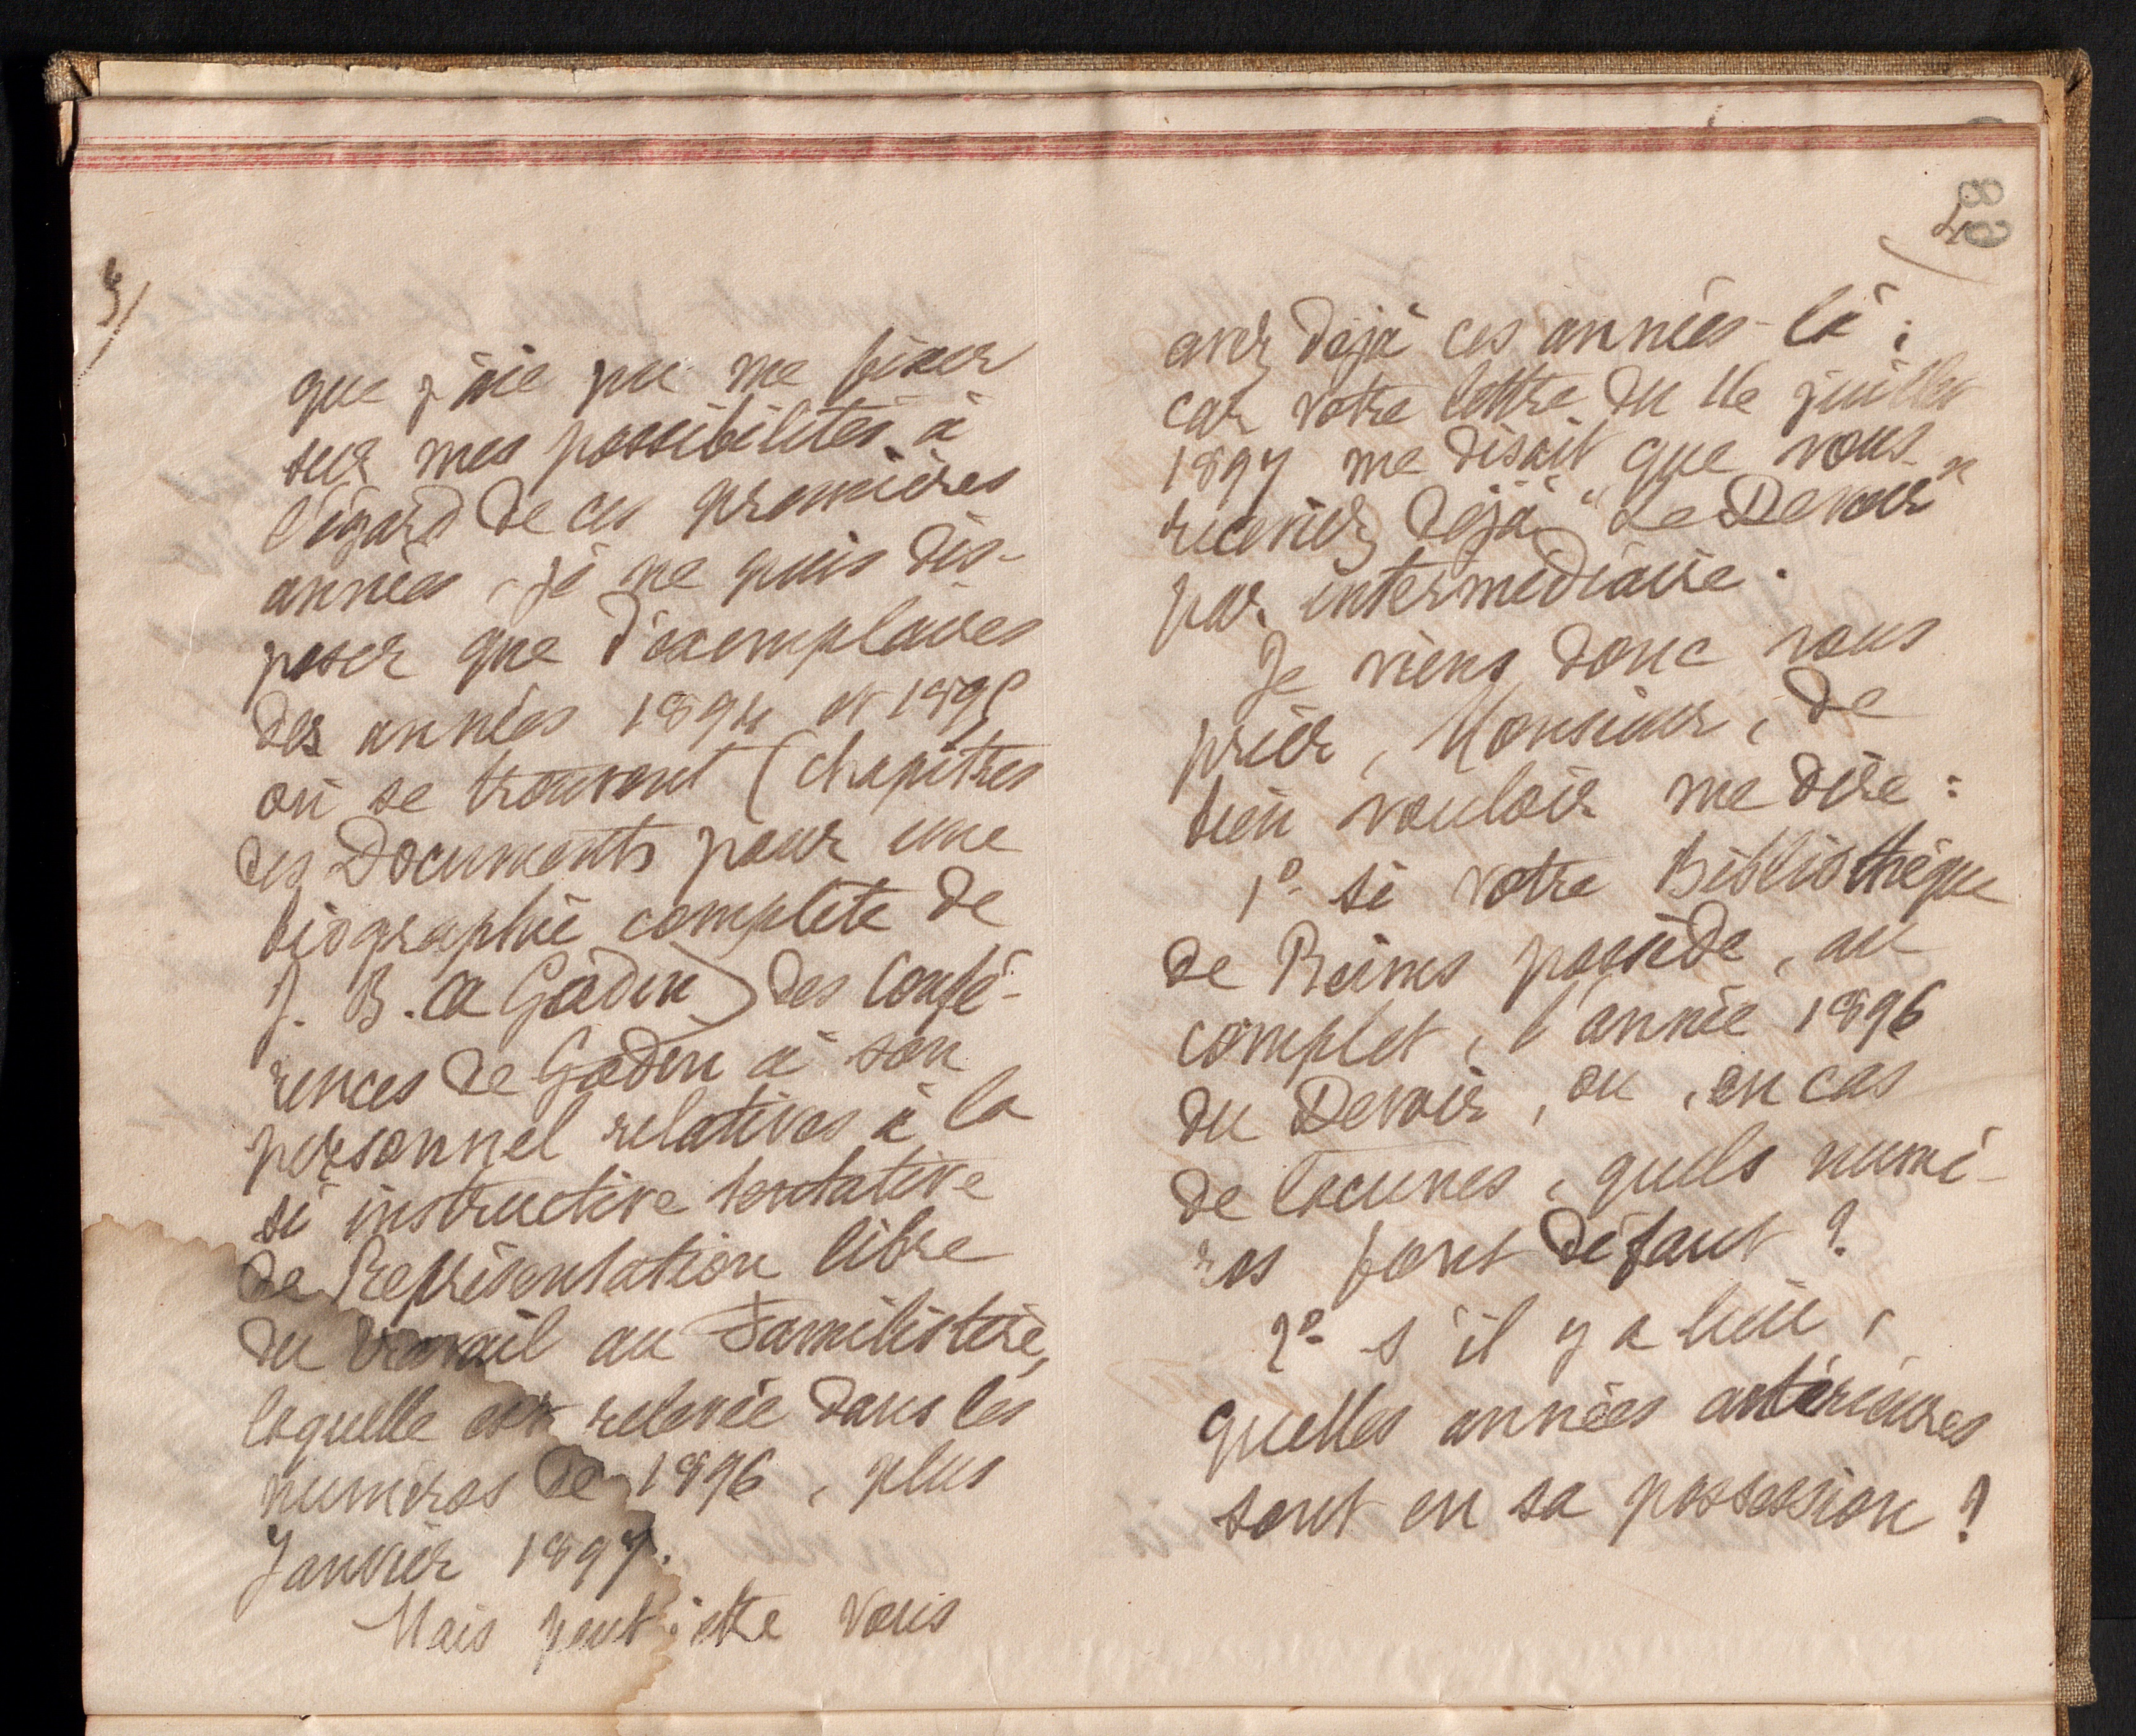 3/
que j'aie pu me fixer
sur mes possibilités à
l'égard de ces premières
années, je ne puis dis-
poser que d'exemplaires
des années 1894 et 1895
où se trouvent (chapitres
des Documents pour une
biographie complète de
J. B. A Godin) des Confé-
rences de Godin à son
personnel relatives à la
si instructive tentative
de Représentation libre
du travail au Familistère,
laquelle est relevée dans les
numéros de 1896, plus
Janvier 1897.
Mais peut être vous
89
4/
avez déjà ces années-là ;
car votre lettre du 16 juillet
1897 me disait que vous
receviez déjà "Le Devoir"
par intermédiaire.
Je viens donc vous
prier, Monsieur, de
bien vouloir me dire :
1° si votre Bibliothèque
de Reims possède, au
complet, l'année 1896
du Devoir, ou, en cas
de lacunes, quels numé-
ros font défaut ?
2° s'il y a lieu,
quelles années antérieures
sont en sa possession ?